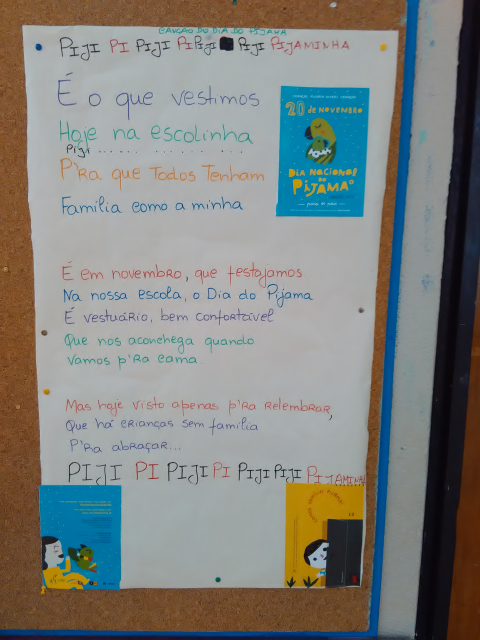 CANÇÃO DO DIA DO PIJAMA
PIJI PI PIJI PIPIJI PIJI PIJAMINHA
É o que vestimos
Hoje na escolinha
Piji
P'ra que Todos Tenham
Família como a minha
20 de NOVEMBRO
DIA NACIONAL
DO
PIJAMA
É em novembro, que festejamos
Na nossa escola, o Dia do Pijama
É vestuário, bem confortável
Que nos aconchega quando
Vamos p'ra cama
Mas hoje visto apenas p'ra relembrar,
Que há crianças sem família
P'ra abraçar...
PIJI PI PIJI PI PIJI PIJI PIJAMINHA